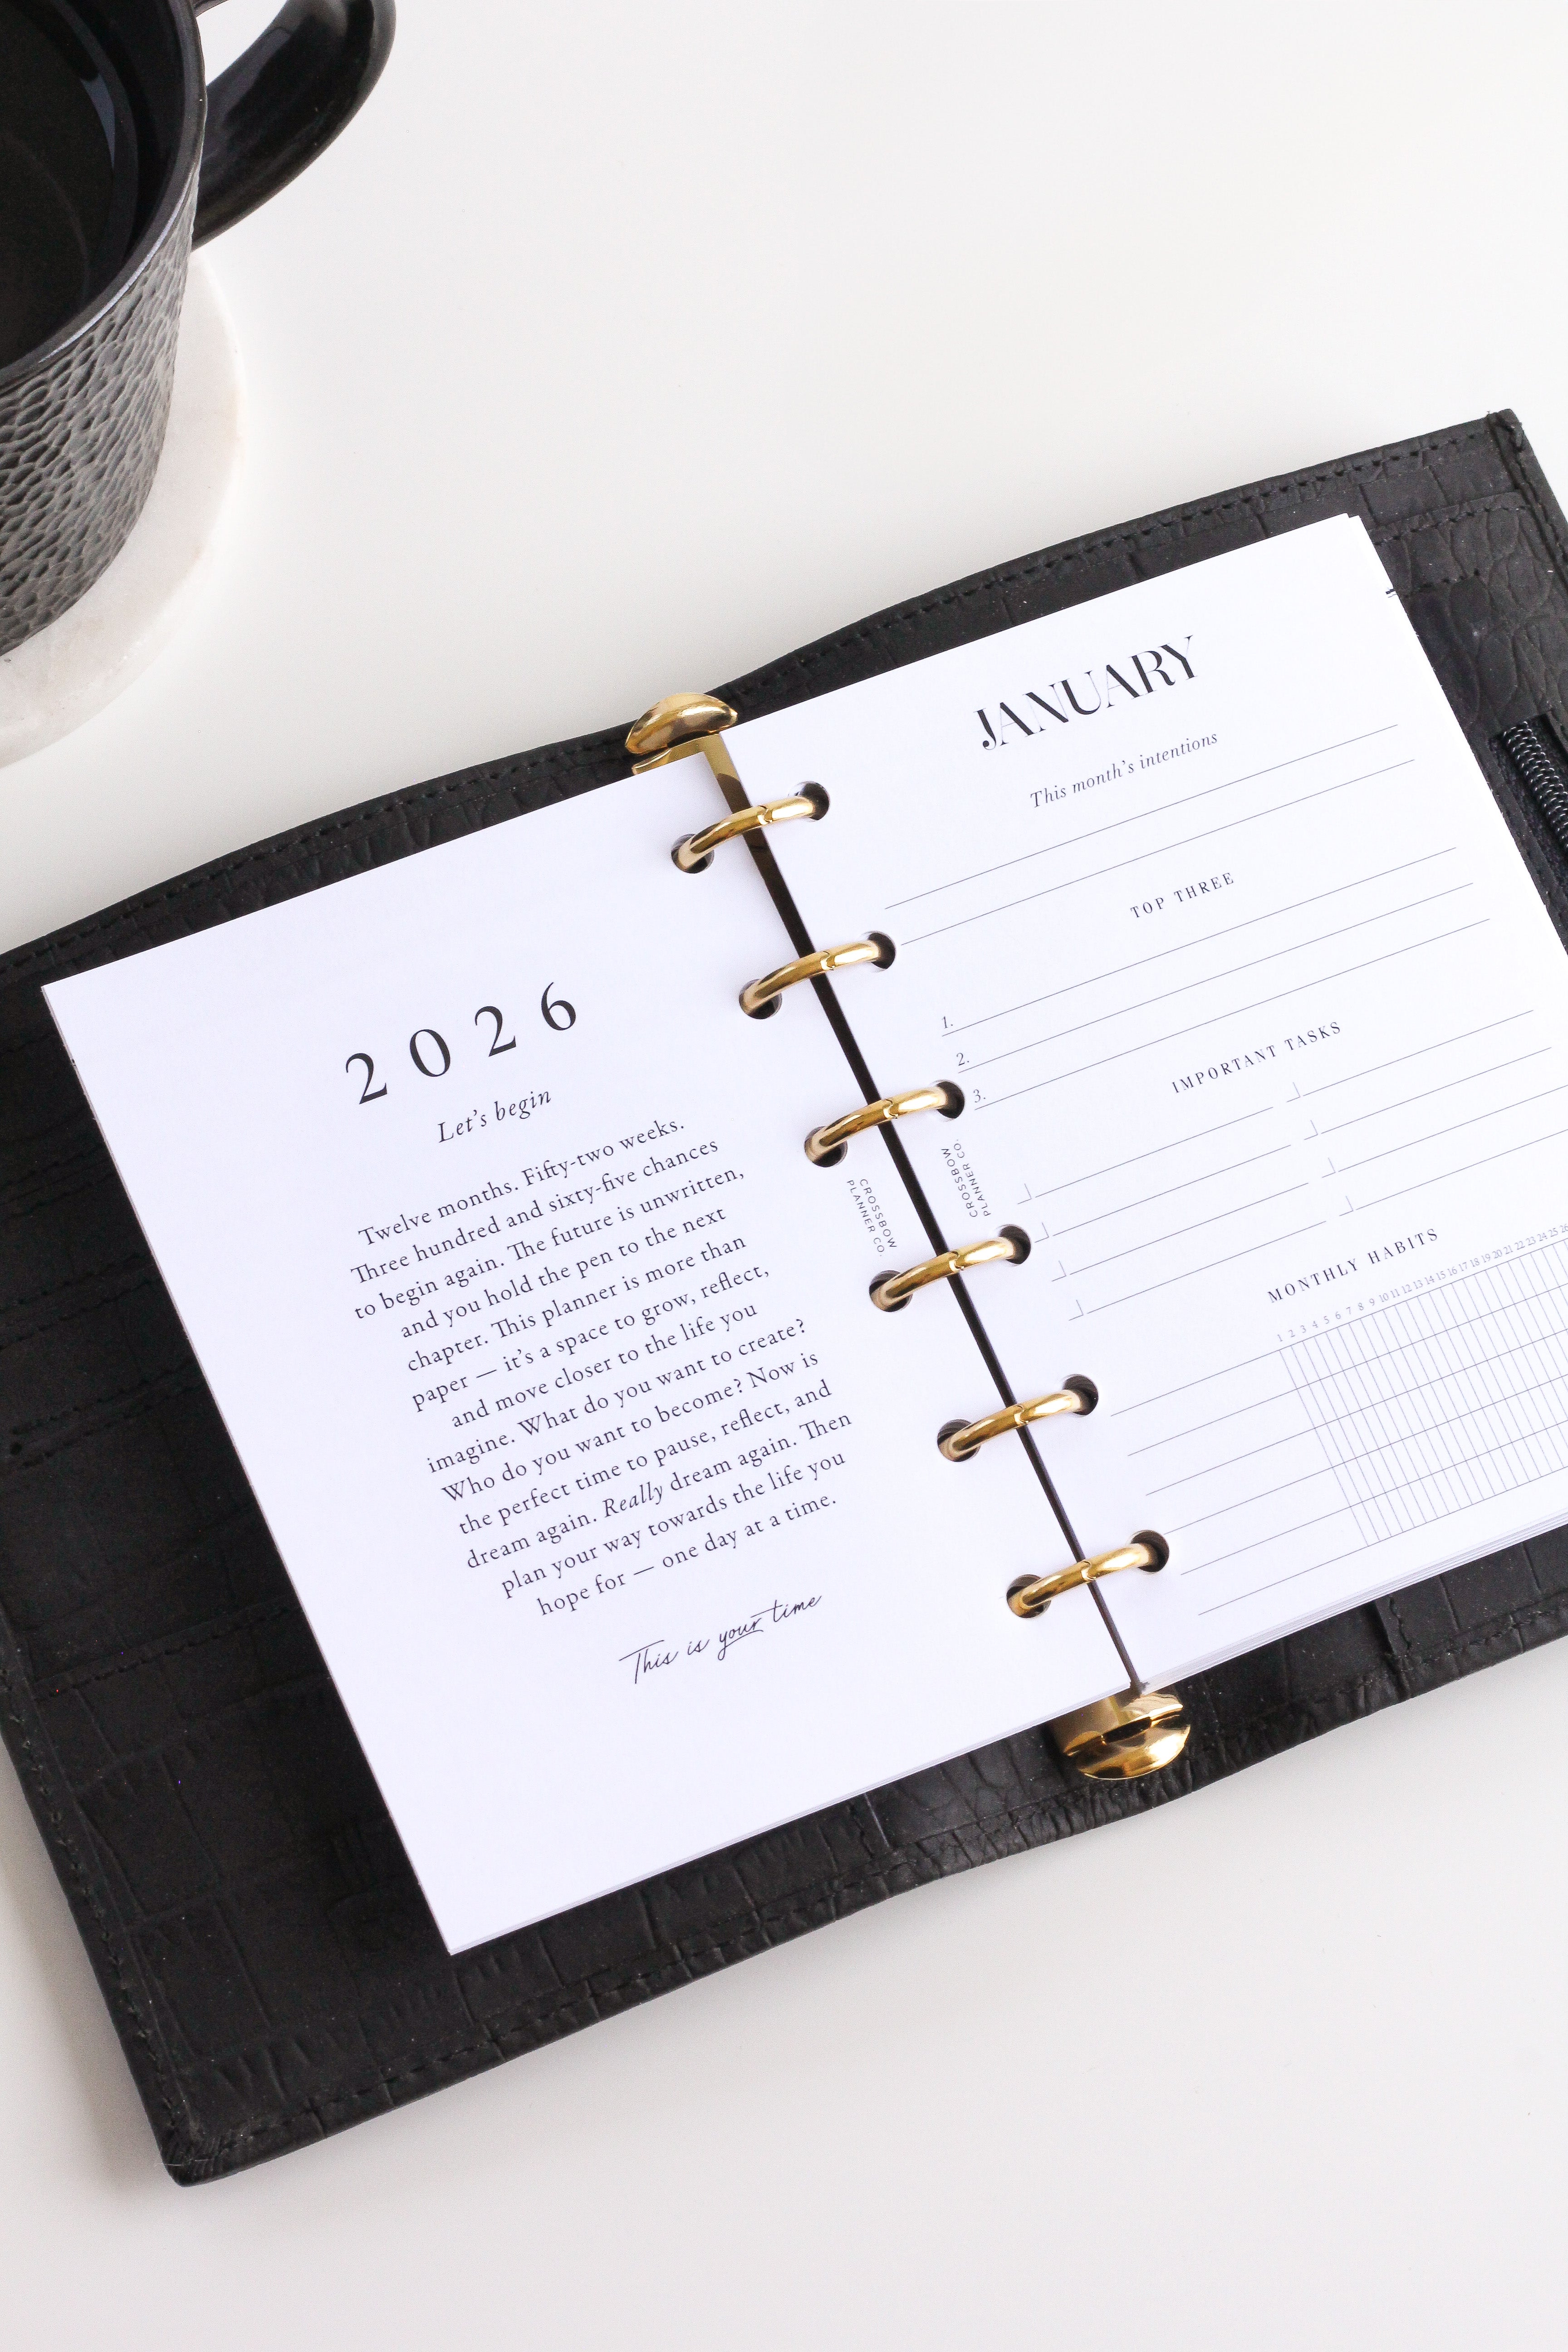 2026
Let's begin
Twelve months. Fifty-two weeks.
Three hundred and sixty-five chances
to begin again. The future is unwritten,
and you hold the pen to the next
chapter. This planner is more than
paper — it's a space to grow, reflect,
and move closer to the life you
imagine. What do you want to create?
Who do you want to become? Now is
the perfect time to pause, reflect, and
dream again. Really dream again. Then
plan your way towards the life you
hope for — one day at a time.
This is your time
CROSSBOW
PLANNER CO.
CROSSBOW
PLANNER CO.
JANUARY
This month's intentions
TOP THREE
1.
2.
3.
IMPORTANT TASKS
MONTHLY HABITS
1 2 3 4 5 6 7 8 9 10 11 12 13 14 15 16 17 18 19 20 21 22 23 24 25